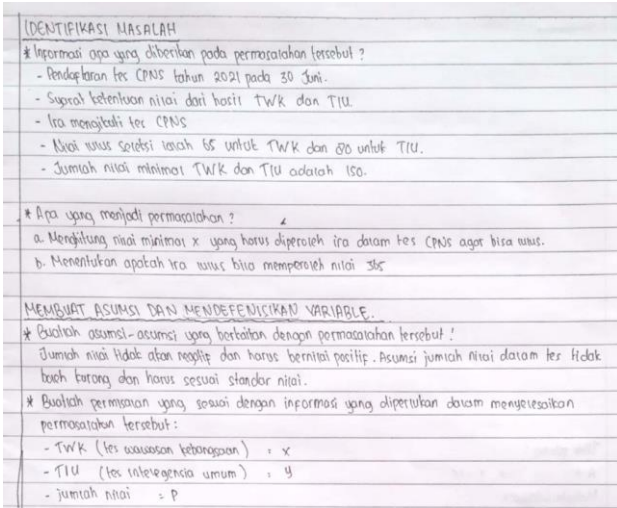 IDENTIFIKASI MASALAH
* Informasi apa yang diberikan pada permasalahan tersebut ?
- Pendaftaran tes CPNS tahun 2021 pada 30 Juni.
- Syarat ketentuan nilai dari hasil TWK dan TIU
- Ira mengikuti tes CPNS
- Nilai lulus seleksi ialah 65 untuk TWK dan 80 untuk TIU.
- Jumlah nilai minimal TWK dan TIU adalah 150.
* Apa yang menjadi permasalahan ?
a. Menghitung nilai minimal x yang harus diperoleh ira dalam tes CPNS agar bisa lulus.
b. Menentukan apakah ira lulus bila memperoleh nilai 365
MEMBUAT ASUMSI DAN MENDEFENISIKAN VARIABLE.
* Buatlah asumsi-asumsi yang berkaitan dengan permasalahan tersebut !
Jumlah nilai tidak akan negatif dan harus bernilai positif. Asumsi jumlah nilai dalam tes tidak
boleh kurang dan harus sesuai standar nilai.
* Buatlah permisalan yang sesuai dengan informasi yang diperlukan dalam menyelesaikan
permasalahan tersebut :
- TWK (tes wawasan kebangsaan) = x
- TIU (tes intelegensia umum) = y
- jumlah nilai = P